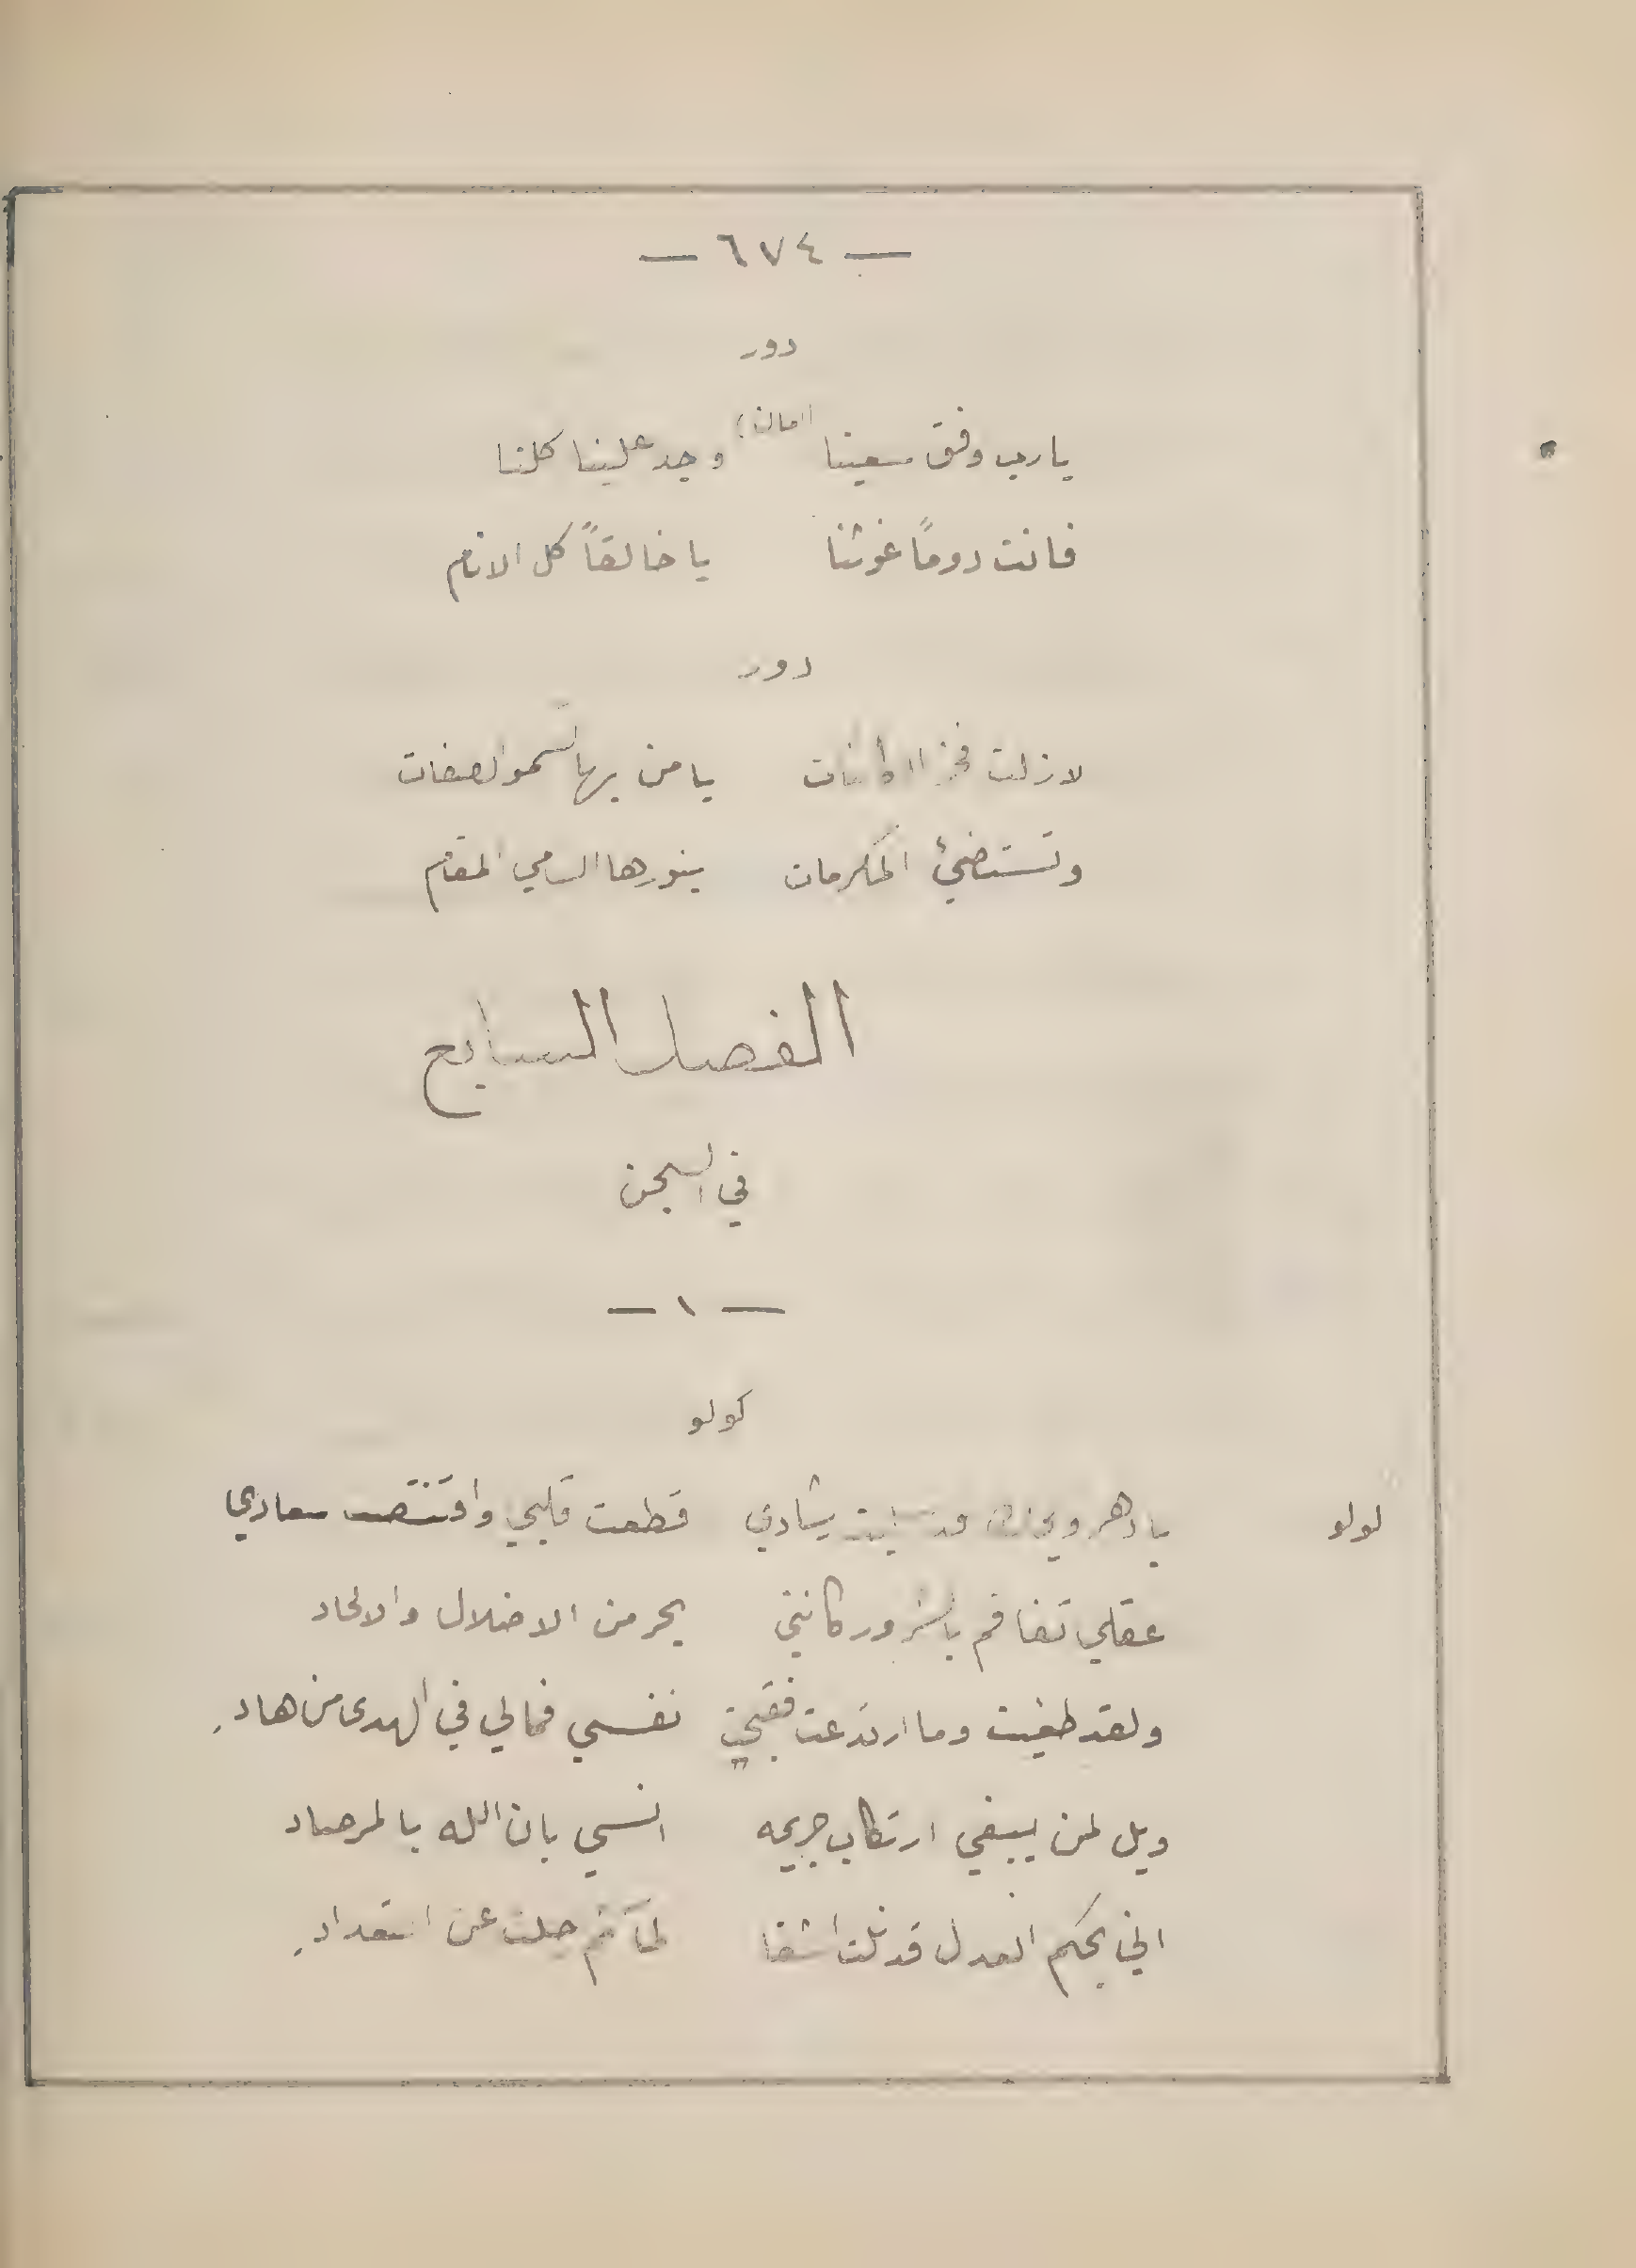 — ٦٧٤ —
دور
يارب وفق سعينا (امان) وجد علينا كلنا
فانت دوماً غوثنا يا خالقاً كل الانام
دور
لازلت فخر الكائنات يا من بها تسمو الصفات
وتستضئ المكرمات بنورها السامي المقام
الفصل السابع
في السجن
— ١ —
كولو
لولو يا دهر ويحك قد رشادي قطعت قلبي واقتنصت سعادي
عقلي تفاقم بالشرور كانني بحر من الاضلال والالحاد
ولقد طغيت وما ارتدعت فقبحت نفسي فمالي في الهدى من هاد
ويل لمن يبغي ارتكاب جريمه انسي بان الله بالمرصاد
اني بحكم العدل قد نلت الشقا لمآثم جلت عن استعداد